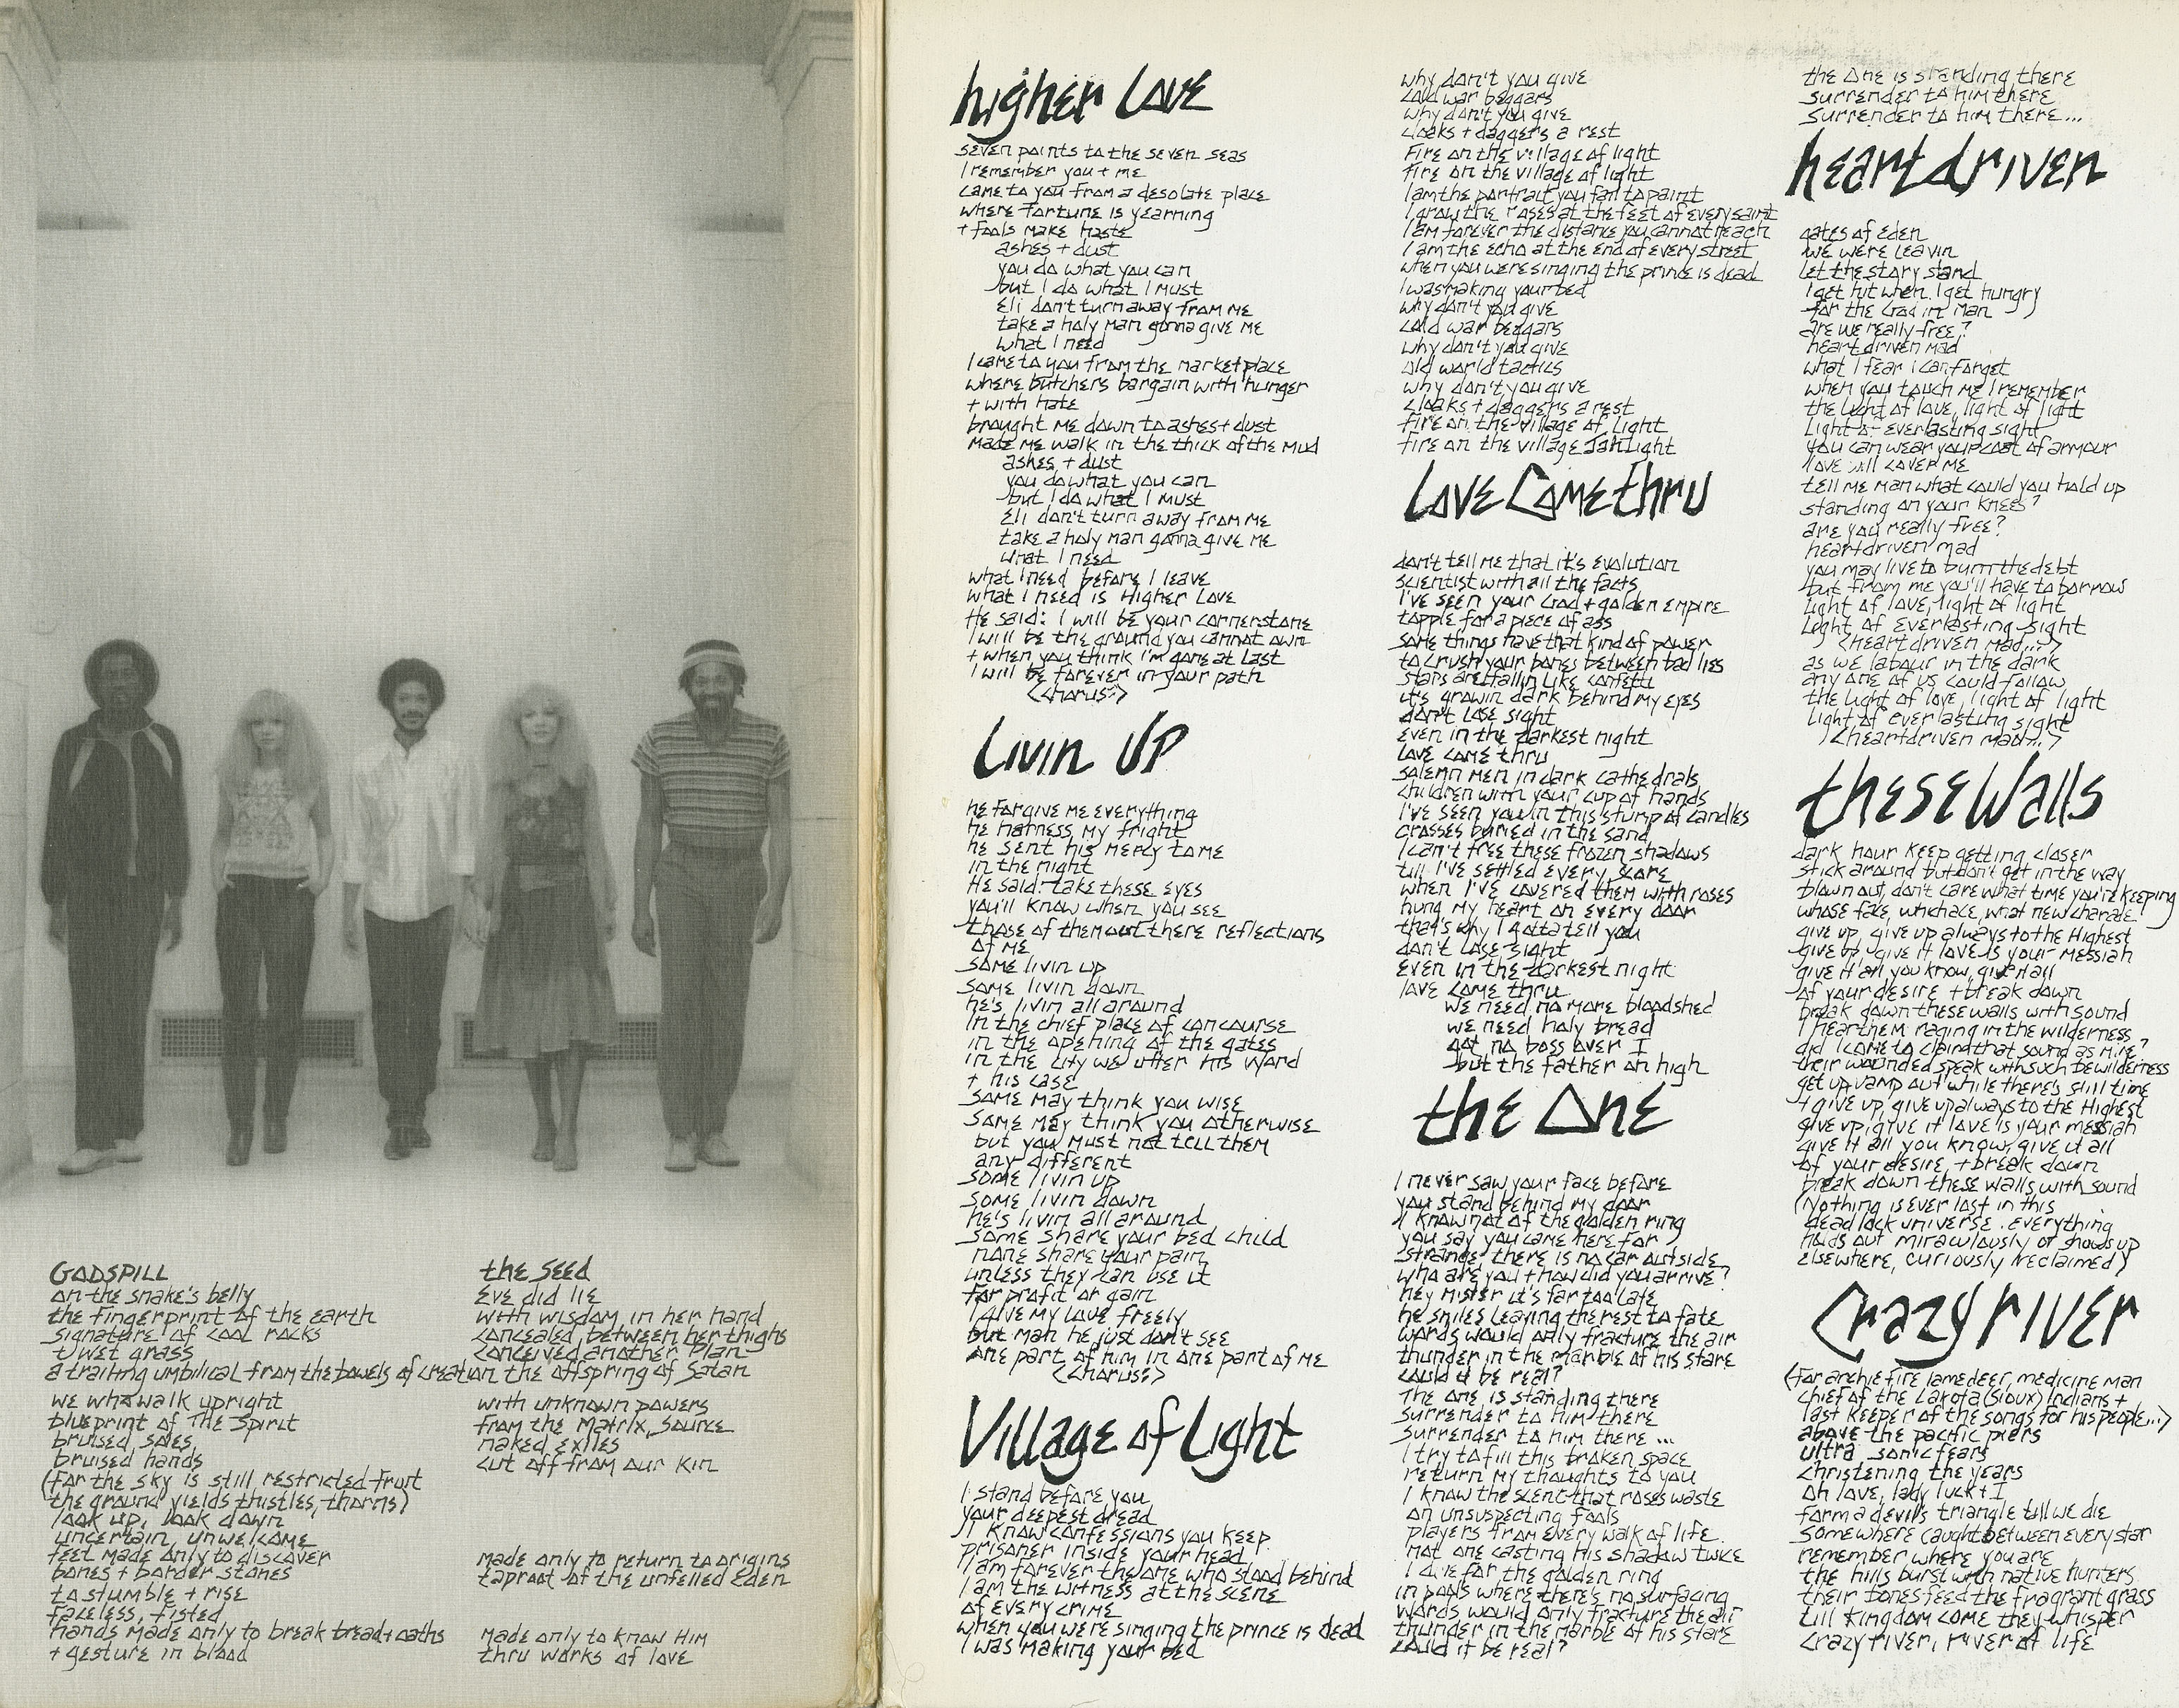 GODSPILL
on the snake's belly
the fingerprint of the earth
signature of cool rocks
+ wet grass
a trailing umbilical from the bowels of creation
we who walk upright
blueprint of The Spirit
bruised soles
bruised hands
(for the sky is still restricted fruit
the ground yields thistles, thorns)
look up, look down
uncertain, unwelcome
feet made only to discover
bones + border stones
to stumble + rise
faceless, fisted
hands made only to break bread + oaths
+ gesture in blood
the seed
Eve did lie
with wisdom in her hand
concealed between her thighs
conceived another Plan
the offspring of Satan
with unknown powers
from the Matrix, Source
naked exiles
cut off from our kin
made only to return to origins
taproot of the unfelled Eden
made only to know Him
thru works of love
higher Love
seven points to the seven seas
I remember you + me
came to you from a desolate place
where fortune is yearning
+ fools make haste
ashes + dust
you do what you can
but I do what I must
Eli don't turn away from me
take a holy man gonna give me
what I need
I came to you from the marketplace
where butchers bargain with hunger
+ with hate
brought me down to ashes + dust
made me walk in the thick of the mud
ashes + dust
you do what you can
but I do what I must
Eli don't turn away from me
take a holy man gonna give me
what I need
what I need before I leave
what I need is Higher Love
He said: I will be your cornerstone
I will be the ground you cannot own
+ when you think I'm gone at last
I will be forever in your path
<chorus:>
Livin Up
he forgive me everything
he harness my fright
he sent his mercy to me
in the night
He said: take these eyes
you'll know when you see
those of them out there reflections
of me
some livin up
some livin down
he's livin all around
In the chief place of concourse
in the opening of the gates
in the city we utter his Word
+ his case
some may think you wise
some may think you otherwise
but you must not tell them
any different
some livin up
some livin down
he's livin all around
some share your bed child
none share your pain
unless they can use it
for profit or gain
I give my love freely
but man he just don't see
one part of him in one part of me
<chorus:>
Village of Light
I stand before you
your deepest dread
I know confessions you keep
prisoner inside your head
I am forever the one who stood behind
I am the witness at the scene
of every crime
when you were singing the prince is dead
I was making your bed
why don't you give
cold war beggars
why don't you give
cloaks + daggers a rest
Fire on the village of light
fire on the village of light
I am the portrait you fail to paint
I grow the roses at the feet of every saint
I am forever the distance you cannot reach
I am the echo at the end of every street
when you were singing the prince is dead
I was making your bed
why don't you give
cold war beggars
why don't you give
old world tactics
why don't you give
cloaks + daggers a rest
fire on the village of light
fire on the village Jah Light
Love Come thru
don't tell me that it's evolution
scientist with all the facts
I've seen your God + golden empire
topple for a piece of ass
some things have that kind of power
to crush your bones between bad lies
stars are fallin like confetti
it's growin dark behind my eyes
don't lose sight
even in the darkest night
love come thru
solemn men in dark cathedrals
children with your cup of hands
I've seen you in this stump of candles
crosses buried in the sand
I can't free these frozen shadows
till I've settled every score
when I've covered them with roses
hung my heart on every door
that's why I gotta tell you
don't lose sight
even in the darkest night
love come thru
we need no more bloodshed
we need holy bread
got no boss over I
but the father on high
the One
I never saw your face before
you stand behind my door
I know not of the golden ring
you say you came here for
strange, there is no car outside
who are you + how did you arrive?
hey mister it's far too late
he smiles leaving the rest to fate
words would only fracture the air
thunder in the marble of his stare
could it be real?
The one is standing there
surrender to him there
surrender to him there ...
I try to fill this broken space
return my thoughts to you
I know the scent that roses waste
on unsuspecting fools
players from every walk of life
not one casting his shadow twice
I dive for the golden ring
in pools where there's no surfacing
words would only fracture the air
thunder in the marble of his stare
could it be real?
the One is standing there
surrender to him there
surrender to him there...
heartdriven
gates of Eden
we were leavin
let the story stand
I get hit when I get hungry
for the God in Man
are we really free?
heartdriven mad
what I fear I can forget
when you touch me I remember
the light of love, light of light
light of everlasting sight
you can wear your coat of armour
love will cover me
tell me man what could you hold up
standing on your knees?
are you really free?
heartdriven mad
you may live to burn the debt
but from me you'll have to borrow
light of love, light of light
light of everlasting sight
<heartdriven mad...>
as we labour in the dark
any one of us could follow
the light of love, light of light
light of everlasting sight
<heartdriven mad...>
these Walls
dark hour keep getting closer
stick around but don't get in the way
blown out, don't care what time you're keeping
whose face, which ace, what new charade
give up, give up always to the Highest
give up, give it love is your messiah
give it all you know, give it all
of your desire + break down
break down these walls with sound
I hear them raging in the wilderness
did I come to claim that sound as mine?
their wounded speak with such bewilderness
get up, vamp out while there's still time
+ give up, give up always to the Highest
give up, give it love is your messiah
give it all you know, give it all
of your desire, + break down
break down these walls with sound
(Nothing is ever lost in this
deadlock universe. everything
holds out miraculously or shows up
elsewhere, curiously reclaimed)
Crazy river
(for archie fire lamedeer, medicine man
chief of the Lakota (Sioux) Indians +
last keeper of the songs for his people...>
above the pacific piers
ultra sonic fears
christening the years
oh love, lady luck + I
form a devil's triangle till we die
somewhere caught between every star
remember where you are
the hills burst with native hunters
their bones feed the fragrant grass
till kingdom come they whisper
crazy river, river of life